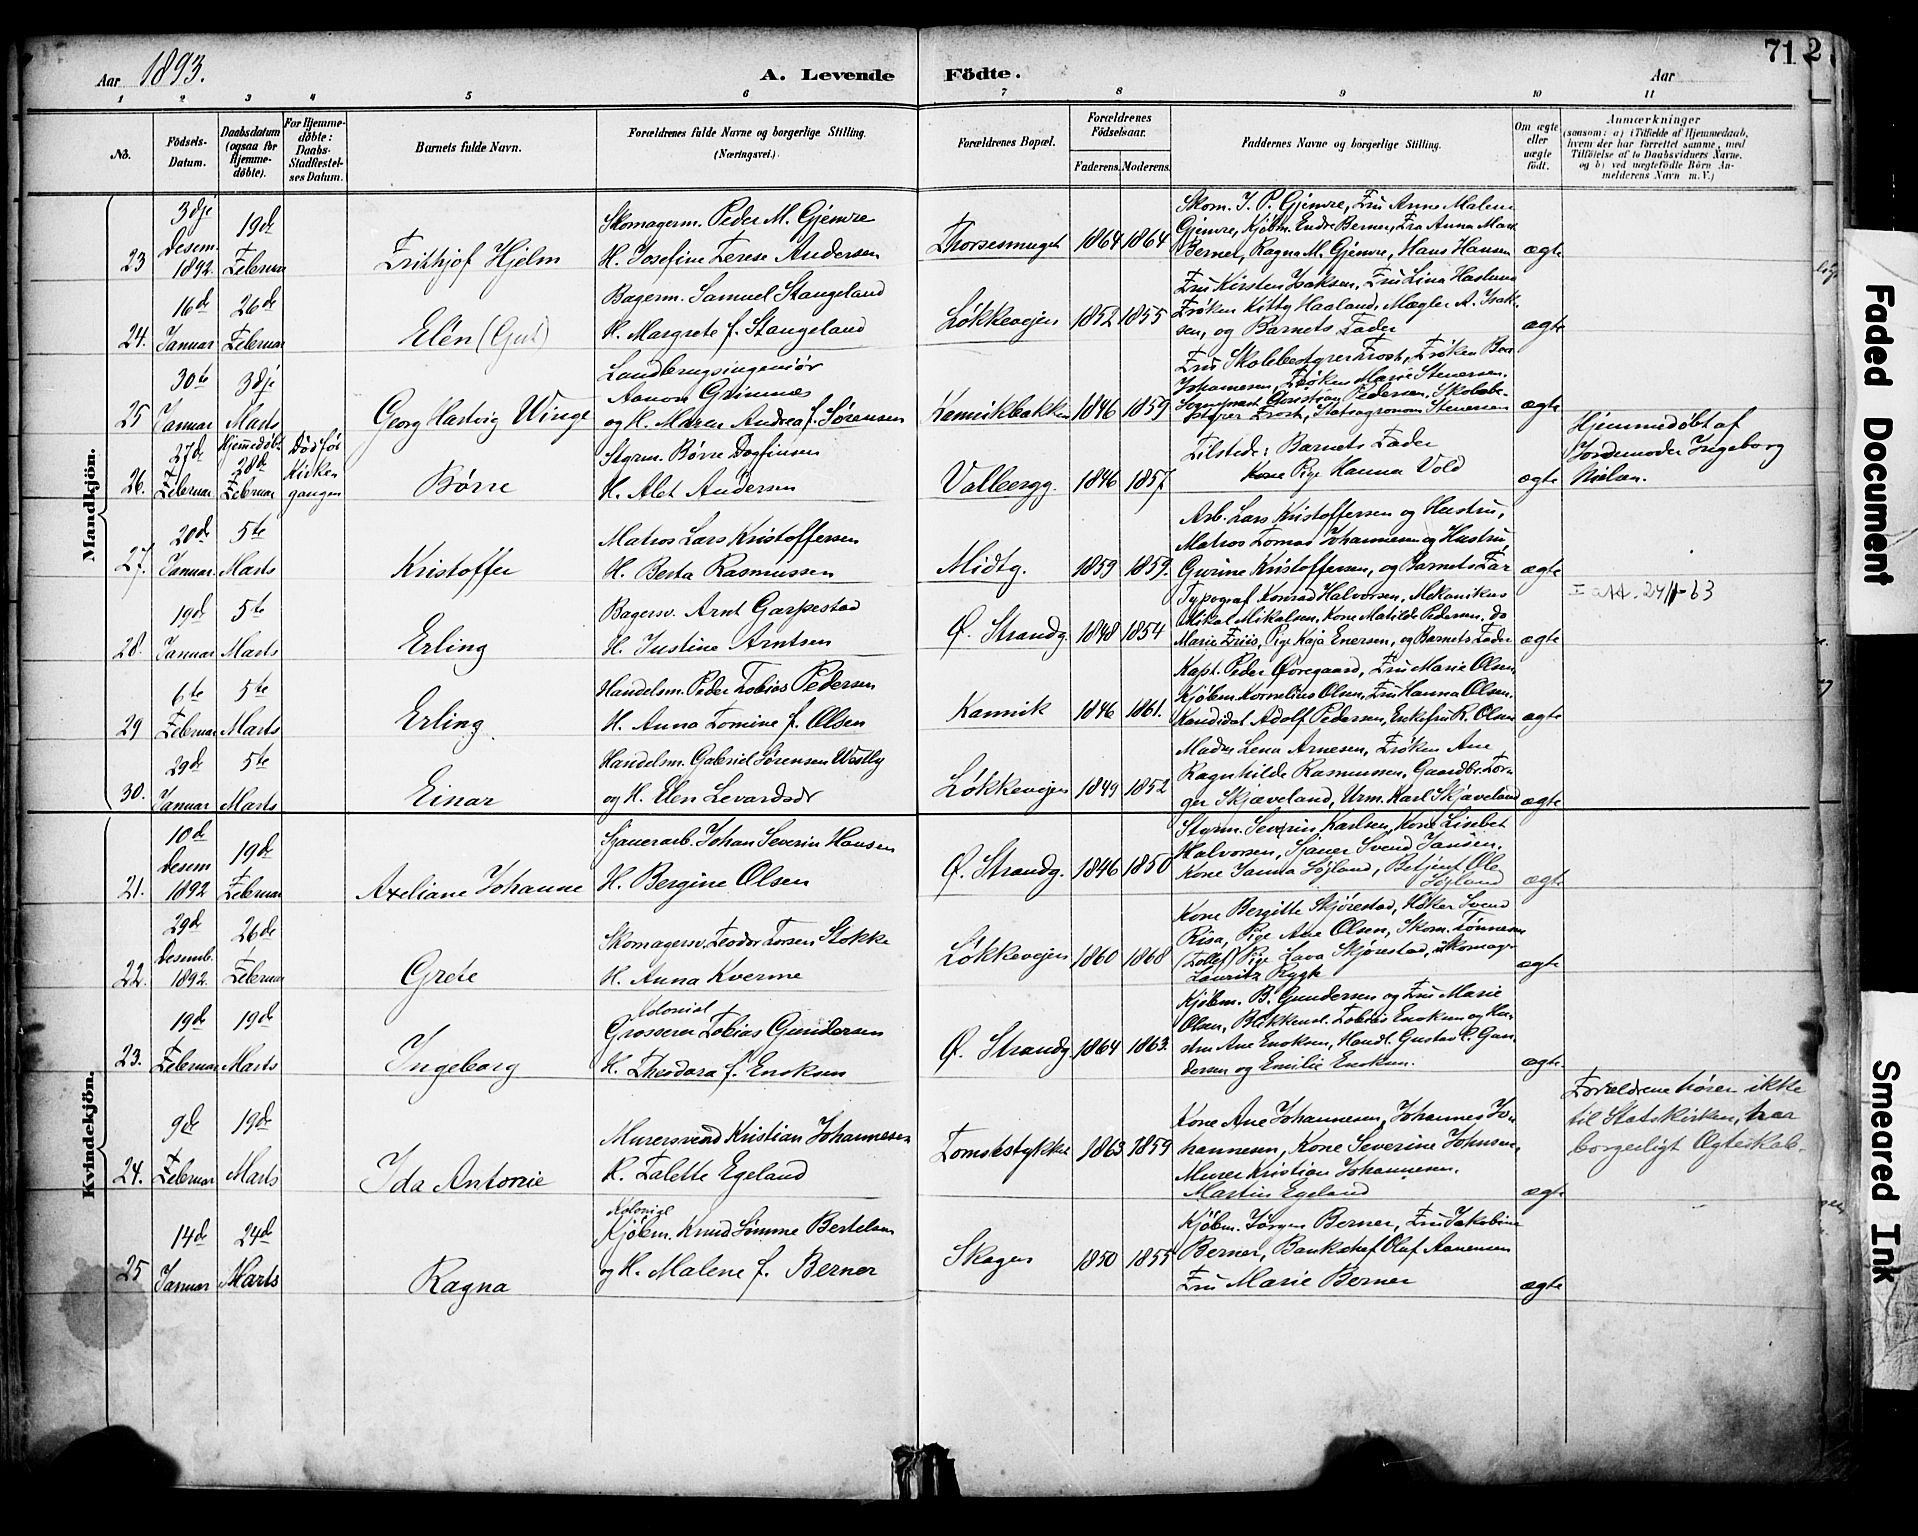 Aar 1893. A. Levende Födte. Aar 71 2
1 2 3 4 5 6 7 8 9 10 11
No. Födsels-Datum. Daabsdatum (ogsaa for Hjemme-döbte). For Hjemme-döbte: Daabs-Stadfæstel-ses Datum. Barnets fulde Navn. Forældrenes fulde Navne og borgerlige Stilling. (Næringsvei.) Forældrenes Bopæl. Forældrenes Födselsaar. Faderens. Moderens. Faddernes Navne og borgerlige Stilling. Om ægte eller uægte födt. Anmærkninger (saasom: a) i Tilfælde af Hjemmedaab, hvem der har forrettet samme, med Tilföielse af to Daabsvidners Navne. og b) ved uægtefödte Börn An-melderens Navn m. V.)
Mandkjön.
23 3dje Desem. 1892. 19de Februar
Frithjof Hjelm
Skomagerm. Peder M. Gjemre
H. Josefine Terese Andersen
Thorsesmuget 1864 1864
Skom. J. P. Gjemre, Fru Anne Malene
Gjemre, Kjøbm. Endre Berner, Fra Anna Mart.
Berner, Ragna M. Gjemre, Hans Hansen
ægte
24. 16de Januar 26de Februar
Elen
Bagerm. Samuel Stangeland
H. Margrete f. Stangeland
Løkkevejen 1852 1855
Fru Kirsten Isaksen, Fru Lina
Frøken Kitty Haaland, Mægler A. Isak-
sen, og Barnets Fader
ægte
25 30te Januar 3dje Marts
Georg Hartvig Winge
Landbrugsingeniør
Aanon Grimnes
og H. Maren Andrea f. Sørensen
Kannikbakken 1846 1859
Fru Skolebestyrer Frost, Frøken
Johannesen, Frøken Marie Stenersen.
Sogneprest Christian Pedersen, Skolebe-
styrer Frost, Statsagronom Stenersen
ægte
26. 27de Februar Hjemmedøbt 28de Februar Død før Kirke-gangen
Børre
Styrm. Børre Dagfinsen
H. Alet Andersen
Valbergg. 1846 1857
Tilstede: Barnets Fader
Kone Pige Hanna Vold
ægte
Hjemmedøbt af
Jordemoder Ingeborg
Nielsen.
27. 20de Januar. 5te Marts
Kristoffer
Matros Lars Kristoffersen
H. Berta Rasmussen
Midtg. 1859 1859.
Arb. Lars Kristoffersen og Hustru,
Matros Tomas Johannesen og Hustru
Gurine Kristoffersen, og Barnets Far
ægte
28. 19de Januar 5te Marts
Erling
Bagersv. Arnt Garpestad
H. Justine Arntsen
Ø. Strandg. 1848 1854
Typograf Konrad Halvorsen, Mekanikus
Mikal Mikalsen, Kone Matilde Pedersen, do
Marie Friis, Pige Kaja Enersen, og Barnets Fader
ægte
29 6te Februar 5te Marts
Erling
Handelsm. Peder Tobias Pedersen
H. Anna Tomine f. Olsen
Kannik 1846 1861.
Kapt. Peder Øvregaard, Fru Marie Olsen,
Kjøbm. Kornelius Olsen, Fru Hanna Olsen,
Kandidat Adolf Pedersen, Enkefru R. Olsen
ægte
30. 29de Januar 5te Marts
Einar
Handelsm. Gabriel Sørensen Westly
og H. Elen Levardsdr
Løkkevejen 1849 1852
Madm Lena Arnesen, Frøken Ane
Ragnhilde Rasmussen, Gaardbr. Tor-
ger Skjæveland, Urm. Karl Skjæveland
ægte
Kvindekjön.
21. 10de Desem 1892 19de Februar
Axeliane Johanne
Sjauerarb. Johan Severin Hansen
H. Bergine Olsen
Ø. Strandg. 1846 1850
Styrm. Severin Karlsen, Kone Lisebet
Halvorsen, Sjauer Svend Jansen.
Kone Janna Løjland, Betjent Ole
Løjland
ægte
22. 29de Desemb. 1892. 26de Februar
Grete
Skomagersv. Teodor Torsen Stokke
H. Anna Kverme
Løkkevejen 1860 1868
Kone Bergitte Skjørestad, Høker Svend
Risa, Pige Ane Olsen, Skom. Tønnesen
(Tollef) Pige Lava Skjørestad, Skomager
Lauritz Rygh
ægte
23. 19de Februar 19de Marts
Ingeborg
Kolonial
Grosserer Tobias Gundersen
H. Theodora f. Enoksen
Ø. Strandg. 1864 1863.
Kjøbm. B. Gundersen og Fru Marie
Olsen, Blikkensl. Tobias Enoksen og Hu-
stru Ane Enoksen, Handl. Gustav C. Gun-
dersen og Emilie Enoksen.
ægte
24. 9de Februar 19de Marts
Ida Antonie
Murersvend Kristian Johannesen
H. Talette Egeland
Tomsestykket 1863 1859
Kone Ane Johannesen, Johannes Jo-
hannesen, Kone Severine Johnsen,
Murer Kristian Johannesen.
Martin Egeland
ægte
Forældrene hører ikke
til Statskirken, har
borgerligt Ægteskab.
25 14de Januar 24de Marts
Ragna
Kolonial
Kjøbm. Knud Sømme Bertelsen
og H. Malene f. Berner
Skagen 1850 1855
Kjøbm. Jørgen Berner, Fru Jakobine
Berner, Bankchef Oluf Aanensen
Fru Marie Berner
ægte
Faded Document
Smeared Ink